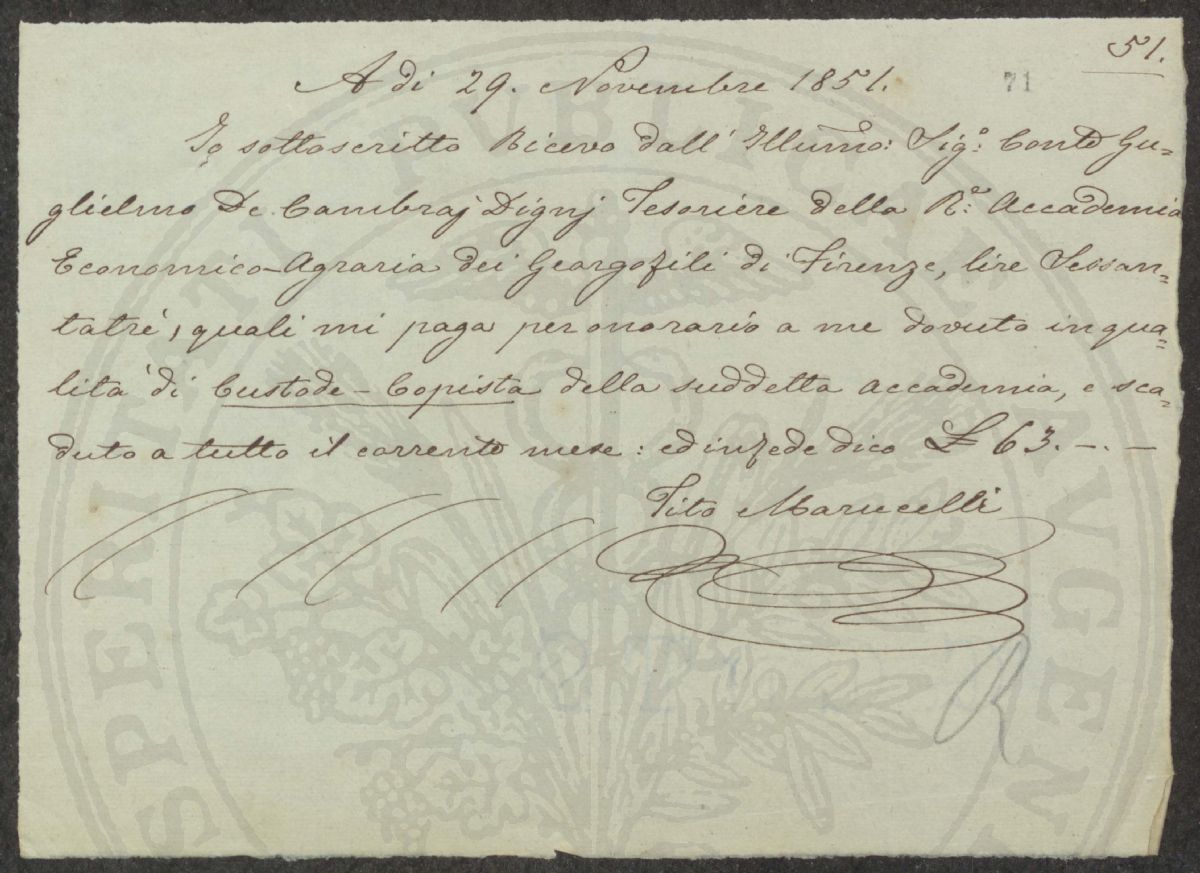 51.
A dì 29. Novembre 1851.
71
Io sottoscritto Ricevo dall' Illumo: Sigo: Conte Gu=
glielmo De Cambraj Dignj Tesoriere della Ra: Accademia
Economico-Agraria dei Georgofili di Firenze, lire Sessan=
tatrè, quali mi paga per onorario a me dovuto in qua=
lità di Custode-Copista della suddetta accademia, e sca=
duto a tutto il corrente mese: ed in fede dico £ 63.-.-
Tito Marucelli
R
PROSPERITATI PVBLICAE AVGENDAE